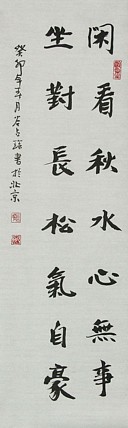 閑看秋水心無事
坐對長松氣自豪
癸卯年五月谷占强書於北京